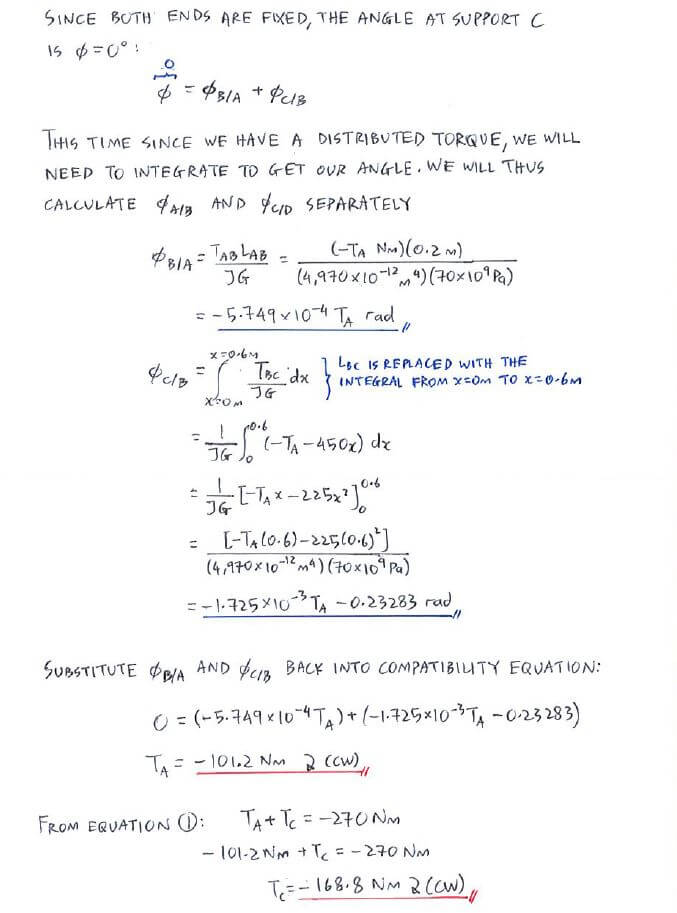 SINCE BOTH ENDS ARE FIXED, THE ANGLE AT SUPPORT C
IS ϕ=0°:
0
ϕ = ϕB/A + ϕC/B
THIS TIME SINCE WE HAVE A DISTRIBUTED TORQUE, WE WILL
NEED TO INTEGRATE TO GET OUR ANGLE. WE WILL THUS
CALCULATE ϕA/B AND ϕC/D SEPARATELY
ϕB/A = TAB LAB / JG = (-TA Nm)(0.2 m) / (4,970×10⁻¹² m⁴)(70×10⁹ Pa)
= -5.749×10⁻⁴ TA rad
ϕC/B = ∫ x=0m x=0.6m TBC / JG dx } LBC IS REPLACED WITH THE
INTEGRAL FROM x=0m TO x=0.6m
= 1/JG ∫₀^0.6 (-TA - 450x) dx
= 1/JG [-TA x - 225x²]₀^0.6
= [-TA(0.6) - 225(0.6)²] / (4,970×10⁻¹² m⁴)(70×10⁹ Pa)
= -1.725×10⁻³ TA - 0.23283 rad
SUBSTITUTE ϕB/A AND ϕC/B BACK INTO COMPATIBILITY EQUATION:
0 = (-5.749×10⁻⁴ TA) + (-1.725×10⁻³ TA - 0.23283)
TA = -101.2 Nm ⤵ (CW)
FROM EQUATION ①: TA + TC = -270 Nm
-101.2 Nm + TC = -270 Nm
TC = -168.8 Nm ⤵ (CW)